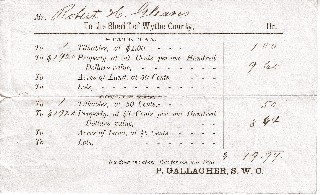 Mr. Robert H. Gleaves
To the Sheriff of Wythe County, Dr.
STATE TAX.
To 1 Tithables, at $1.00 1 00
To $192 Property, at 50 Cents per one Hundred
Dollars value, 9 60
To Acres of Land, at 50 Cents
To Lots,
To 1 Tithables, at 50 Cents, 50
To Property, at Cents per one Hundred
Dollars value, 8 64
To Acres of Land, at Cents
To Lots,
$ 19.74
P. GALLAGHER, S. W. C.